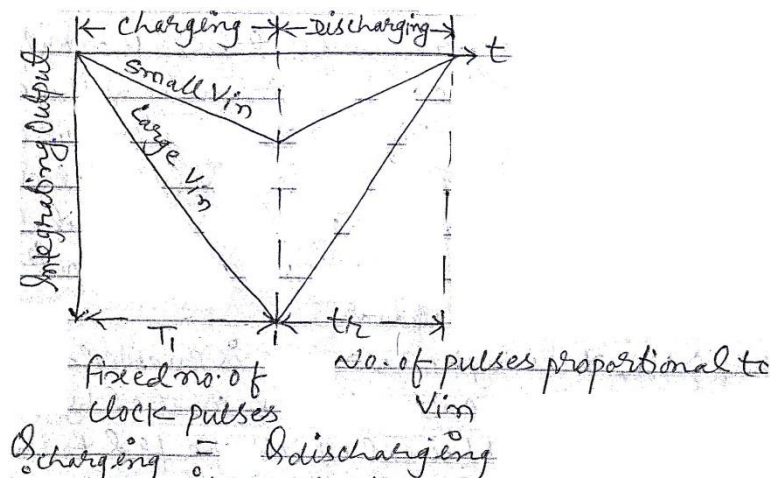 Charging Discharging
t
Integrating Output
small Vin
Large Vin
T1 t2
fixed no. of No. of pulses proportional to
clock pulses Vin
Qcharging = Qdischarging